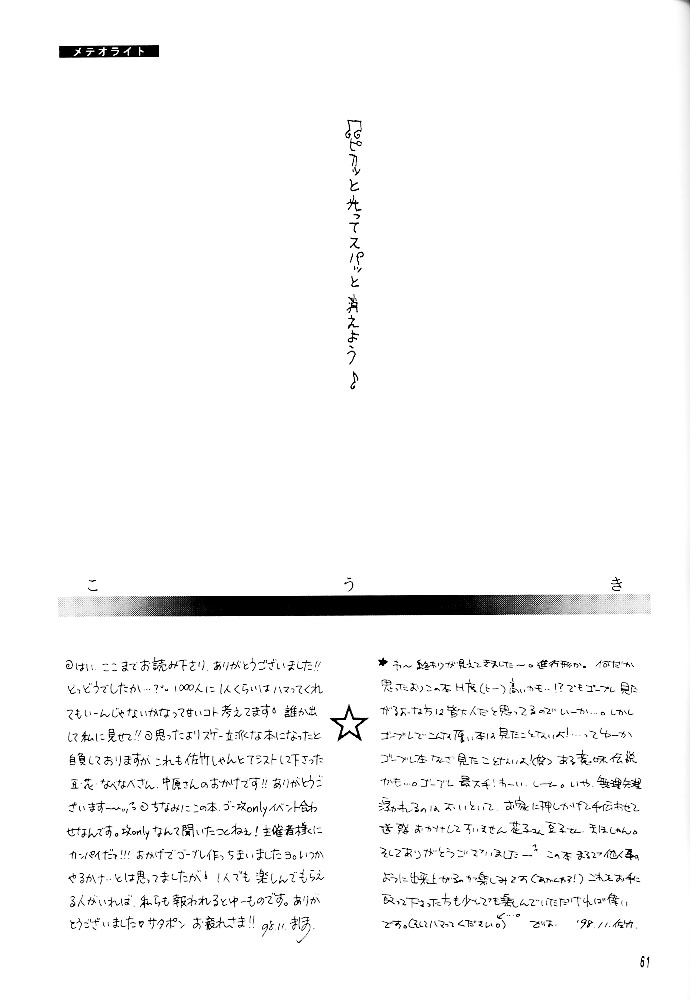 メテオライト
ピカッと光ってスパッと消えよう♪
こうき
はい、ここまでお読み下さり、ありがとうございました!!
どっどうでしたか…?゛。1000人に1人くらいはハマってくれ
てもいーんじゃないかなって甘いコト考えてます。誰か出
して私に見せて!!思ったよりスゲー立派な本になったと
自負しておりますが、これも佐竹しゃんとアシストして下さった
豆・花・なべなべさん、中原さんのおかげです!!ありがとうご
ざいます
ちなみにこの本、ゴー攻onlyイベント合わ
せなんです。攻onlyなんて聞いたコトねぇ!主催者様に
カンパイだッ!!!おかげでゴーブレ作っちまいましたヨ。いつか
やるかナ…とは思ってましたが、1人でも楽しんでもらえ
る人がいれば、私らも報われるとゆーものです。ありが
とうございました サタポン お疲れさま!! 98.11.
★ わ〜 終わりが見えてきました〜。進行形か。何だか
思ったよりこの本H度(ヒー)高いかも…!?でもゴーブレ見た
がるよーな
は皆大人だと思ってるのでいーか…。しかし
ゴーブレでこんな
本は見たことないよ!…ってゆーか
ゴーブレ本なんて見たことないよ
ある意味伝説
かも…。ゴーブレ
いや、無理矢理
お家に押しかけて手伝わせて
迷惑おかけしてすいません
そしてありがとうございました〜
この本まるで他人事の
ように出来上がるのが楽しみです
これをお手に
取って下さった
も少しでも楽しんでいただければ幸い
です。
ください。)
では、'98.11.佐竹.
61